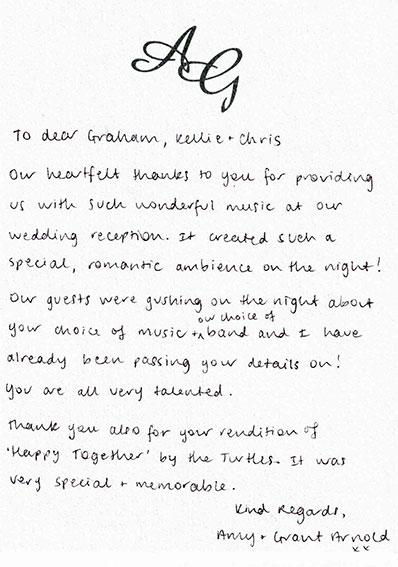 AG
To dear Graham, Kellie + Chris
Our heartfelt thanks to you for providing
us with such wonderful music at our
wedding reception. It created such a
special, romantic ambience on the night!
Our guests were gushing on the night about
our choice of
your choice of music + ^ band and I have
already been passing your details on!
You are all very talented.
Thank you also for your rendition of
'Happy Together' by the Turtles. It was
very special + memorable.
Kind Regards,
Amy + Grant Arnold
x x